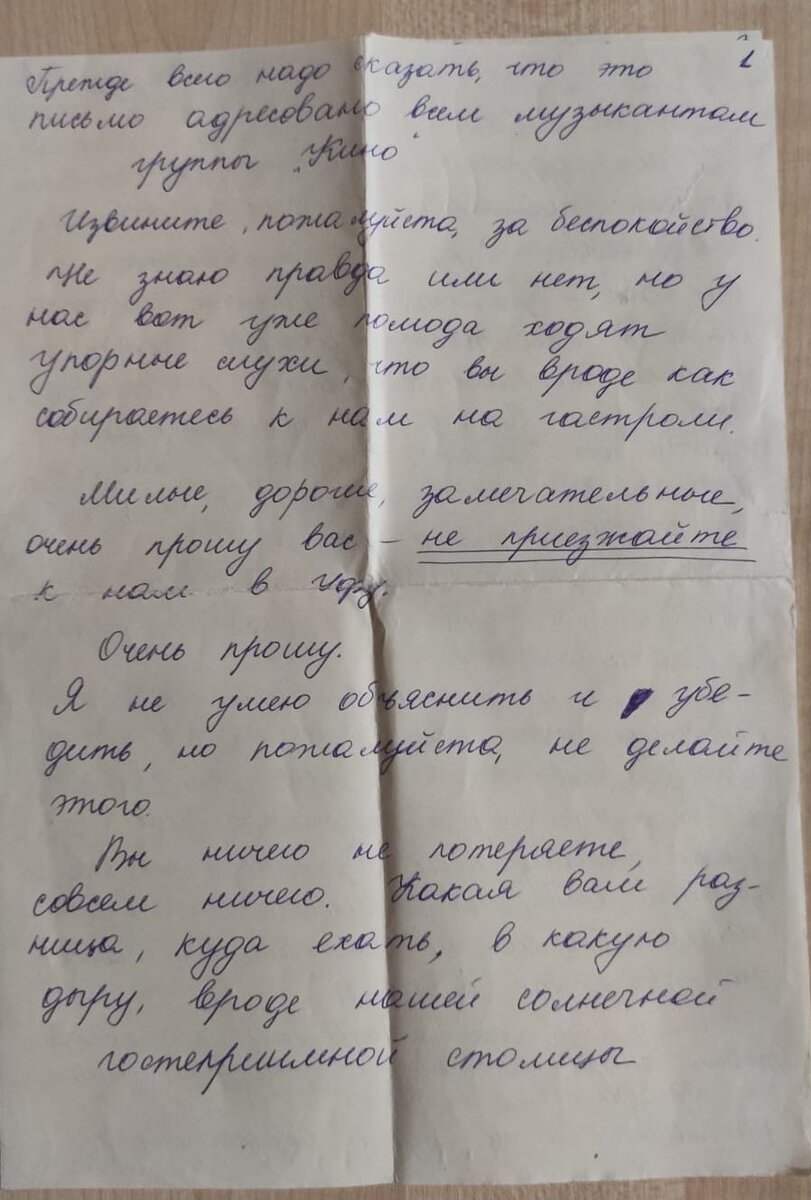 1
Прежде всего надо сказать, что это
письмо адресовано всем музыкантам
группы „Кино“
Извините, пожалуйста, за беспокойство.
Не знаю правда или нет, но у
нас вот уже полгода ходят
упорные слухи, что вы вроде как
собираетесь к нам на гастроли.
Милые, дорогие, замечательные,
очень прошу вас – не приезжайте
к нам в Уфу.
Очень прошу.
Я не умею объяснить и убе-
дить, но пожалуйста, не делайте
этого.
Вы ничего не потеряете,
совсем ничего. Какая вам раз-
ница, куда ехать, в какую
дыру, вроде нашей солнечной
гостеприимной столицы